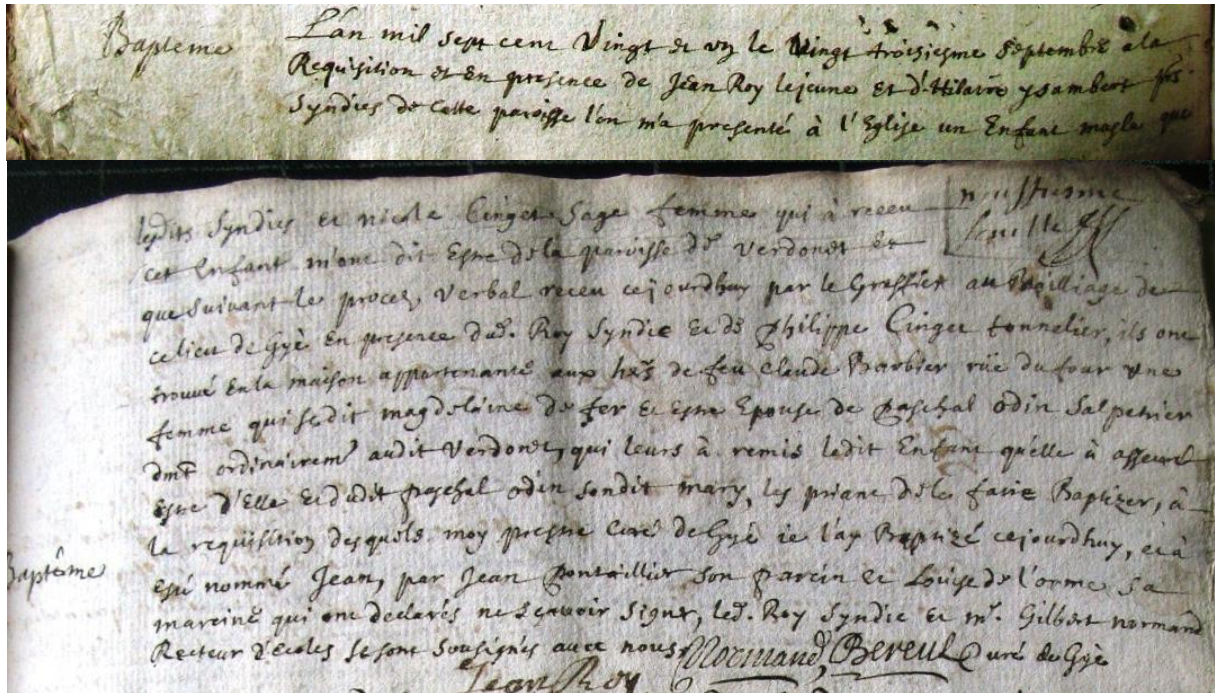 Bapteme
L'an mil sept cent vingt et un le vingt troisiesme septembre a la
Requisition et en presence de Jean Roy lejeune et d'Hilaire ysambert
Syndics de cette paroisse l'on m'a presenté à l'Eglise un Enfant masle que
lesdits Syndics et nicole Cinget sage femme qui à receu
neufiesme
feuille
cet Enfant m'ont dit Estre de la paroisse de Verdonet et
que suivant le procez verbal receu cejourdhuy par le Greffier au Bailliage de
celieu de Gyé En presence dud. Roy Syndic et de Philippe Cinget tonnelier, ils ont
trouvé En la maison appartenante aux hers de feu Claude Barbier rüe du four une
femme qui se dit magdelaine de fer et Estre Epouse de paschal odin salpetrier
dmt ordinairemt audit Verdonet, qui leurs à remis ledit Enfant qu'elle à asseuré
Estre d'Elle et dudit paschal odin sondit mary, les priant de le faire Baptizer, à
la requisition desquels moy prestre curé de Gyé ie l'ay Baptizé cejourdhuy, et à
Bapteme
esté nommé Jean, par Jean pontaillier son parein et Louise de l'orme sa
mareine qui ont declarés ne scauoir signer, led. Roy Syndic et mr. Gilbert normand
Recteur d'écoles se sont sousignés auec nous
Normand, Bereul Curé de Gyé
Jean Roy